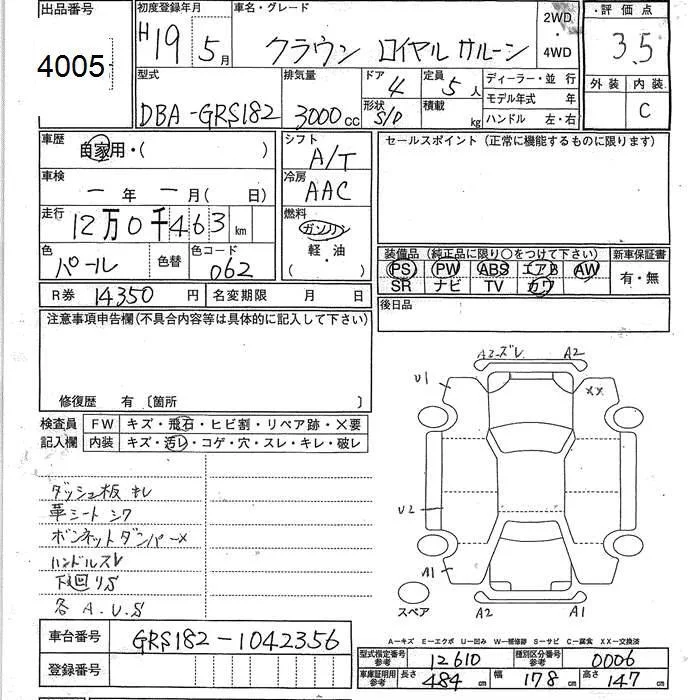 出品番号
4005
初度登録年月
H19 5月
車名・グレード
クラウン ロイヤルサルーン
2WD
・
4WD
・評価点
3.5
外装 内装
C
型式
DBA-GRS182
排気量
3000cc
ドア
4
形状
S/D
定員
5人
積載
kg
ディーラー・並行
モデル年式 年
ハンドル 左・右
車歴
自家用・( )
車検
ー年ー月(日)
走行
12万0千463km
色
パール
色替
色コード
062
シフト
A/T
冷房
AAC
燃料
ガソリン
軽・油
( )
セールスポイント(正常に機能するものに限ります)
装備品(純正品に限り○をつけて下さい)
PS PW ABS エアB AW
SR ナビ TV カワ
新車保証書
有・無
後日品
R券 14350円
名変期限 月 日
注意事項申告欄(不具合内容等は具体的に記入して下さい)
修復歴 有〔箇所 〕
検査員
記入欄
FW キズ・飛石・ヒビ割・リペア跡・×要
内装 キズ・汚レ・コゲ・穴・スレ・キレ・破レ
ダッシュ板キレ
革シートシワ
ボンネットダンパー×
ハンドルスレ
下廻りS
各A.U.S
A2・ズレ A2
U1
XX
U2
A1
スペア
A2
A1
A-キズ E-エクボ U-凹み W-補修跡 S-サビ C-腐食 XX-交換済
車台番号 GRS182-1042356
登録番号
型式指定番号
参考
12610
種別区分番号
参考
0006
車庫証明用
参考
長さ 484cm
幅 178cm
高さ 147cm